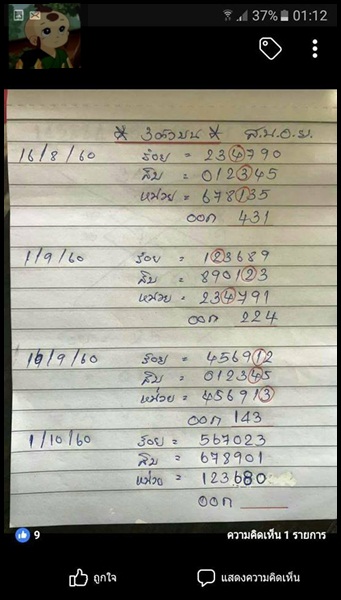 37% 01:12
* 3ตัวบน * ส.บ.อ.ม.
16/8/60 ร้อย = 234790
สิบ = 012345
หน่วย = 678135
ออก 431
1/9/60 ร้อย = 123689
สิบ = 890123
หน่วย = 234791
ออก 224
16/9/60 ร้อย = 456912
สิบ = 012345
หน่วย = 456913
ออก 143
1/10/60 ร้อย = 567023
สิบ = 678901
หน่วย = 123680
ออก
9 ความคิดเห็น 1 รายการ
ถูกใจ แสดงความคิดเห็น